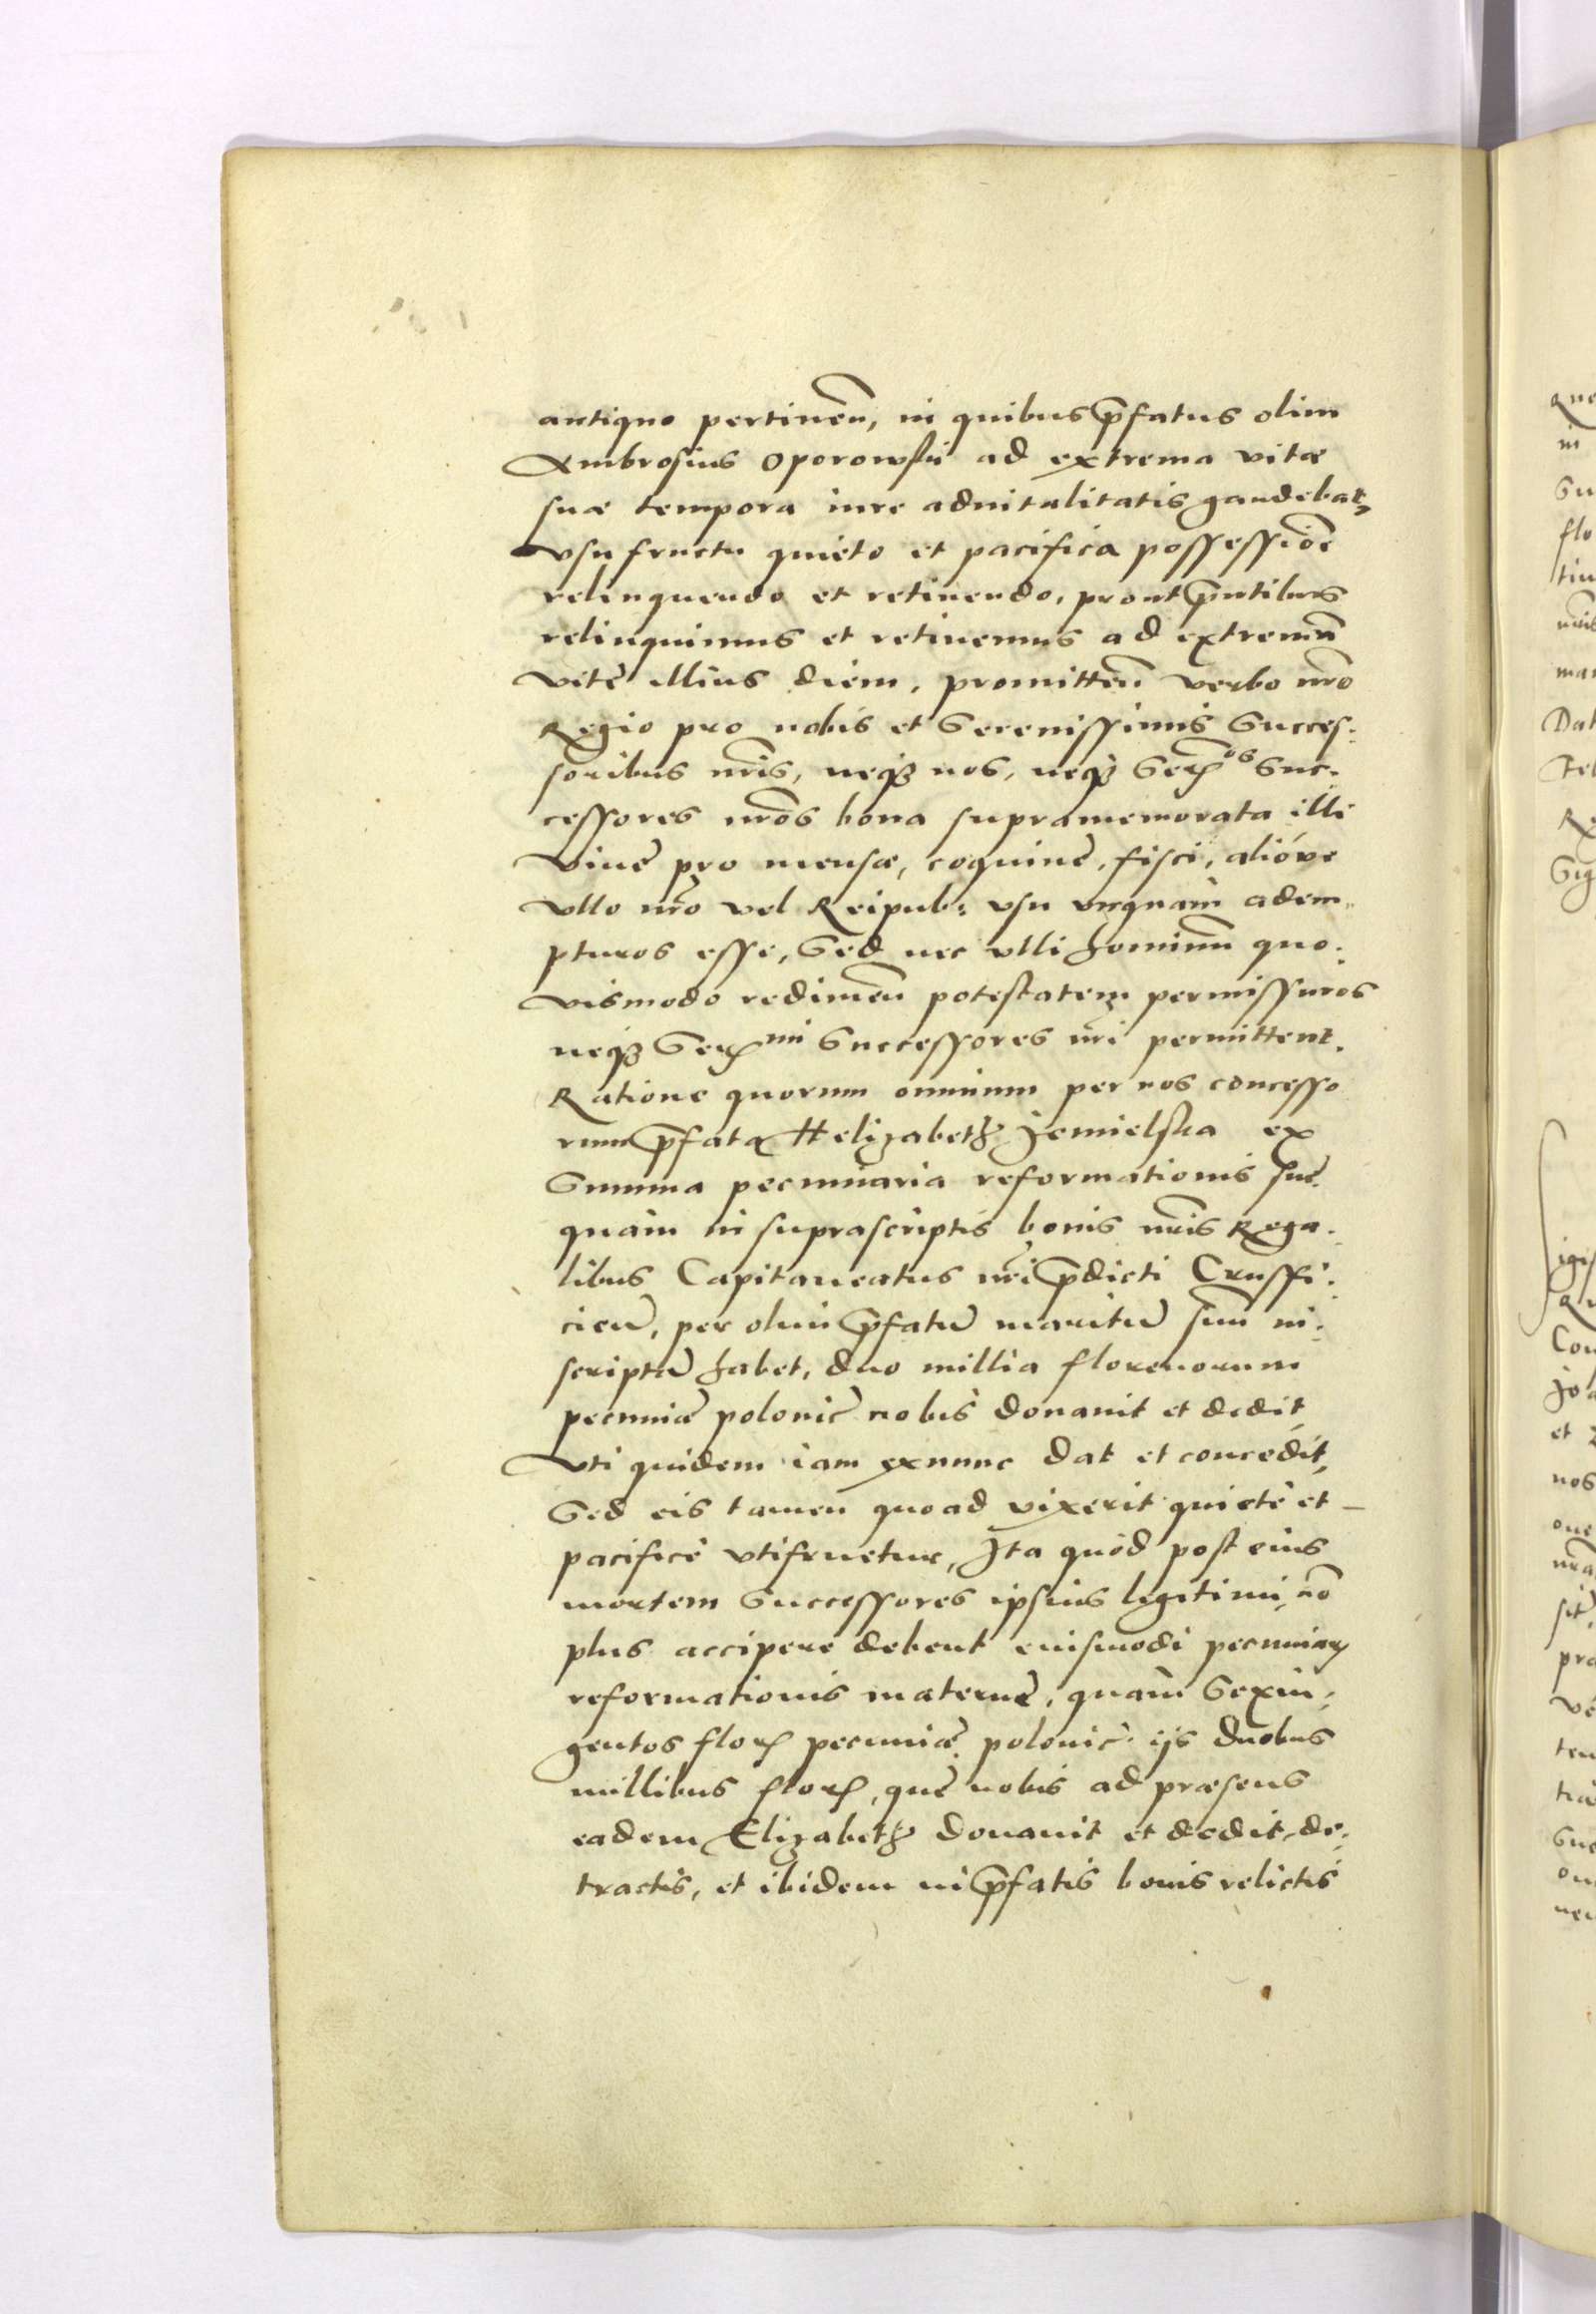 antiquo pertineñ, in quibus p̄fatus olim
Ambrosius Oporowski ad extrema vitæ
suæ tempora iure aduitalitatis gaudebat,
vsufructu quieto et pacifica possessiōe
relinquendo et retinendo, prout p̄ntibus
relinquimus et retinemus ad extremū
vitę illius diem, promitteñ verbo nr̄o
Regio pro nobis et Serenissimis Succes:
soribus nr̄is, neqȝ nos, neqȝ Ser^os Suc:
cessores nr̄os bona supramemorata illi
viuę pro mensæ, coquinę, fisci, alióve
vllo nr̄o vel Reipub: vsu vnquam adem:
pturos esse, Sed nec vlli hominū quo:
vismodo redimeñ potestatem permissuros
neqȝ Ser^mi Successores nr̄i permittent.
Ratione quorum omnium per nos concesso
rum p̄fata Helizabeth Zemielska ex
Summa pecuniaria reformationis suę
quam in suprascriptis bonis nr̄is Rega:
libus Capitaneatus nr̄i p̄dicti Crussfi:
cieñ, per olim p̄fatū maritū suū in:
scriptū habet, duo millia florenorum
pecuniæ polonic̄ nobis donauit et dedit
Vti quidem iam exnunc dat et concedit,
Sed eis tamen quoad vixerit quietè et
pacificè vtifruetur, Ita quòd post eius
mortem Successores ipsius legitimi nō
plus accipere debent eiusmodi pecuniar̄
reformationis maternę, quàm Sexin:
gentos flor̄ pecuniæ polonic̄ ijs duobus
millibus flor̄, quę nobis ad præsens
eadem Elizabeth donauit et dedit, de:
tractis, et ibidem in p̄fatis bonis relictis